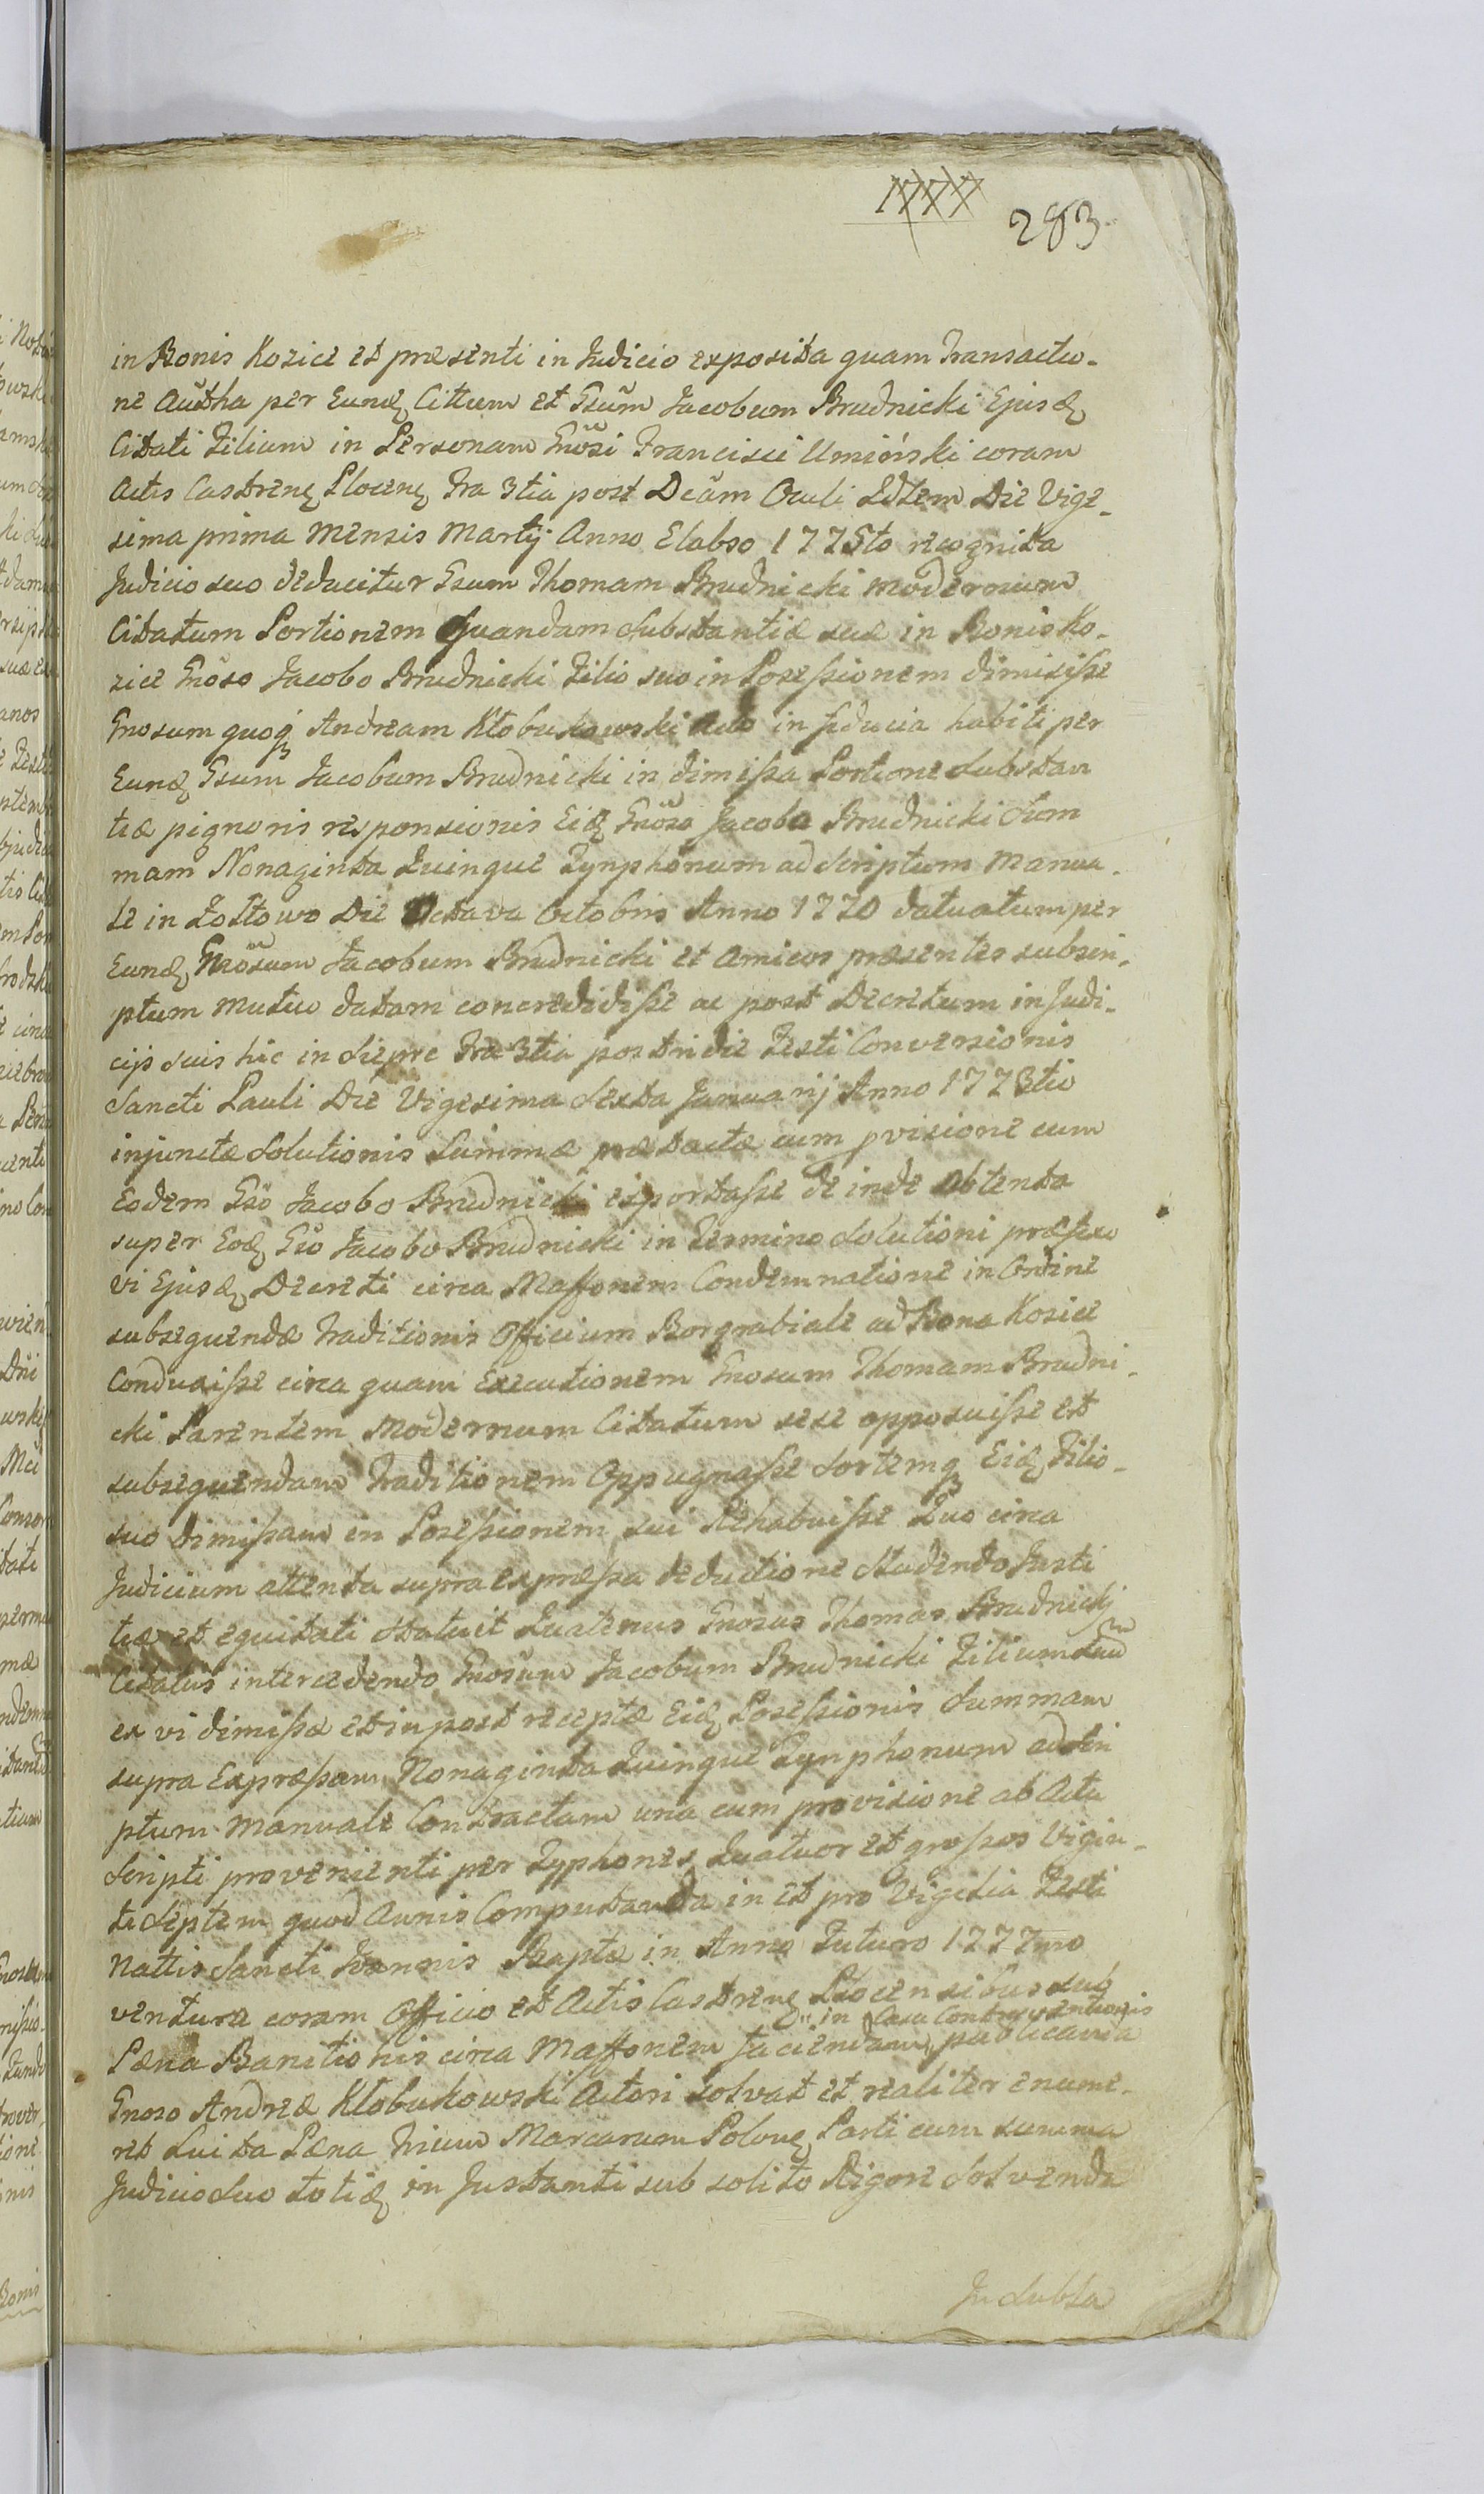 1777
283
in Bonis Kozice et præsenti in Judicio exposita quam Transactio-
ne Auctha per Eundꝫ Citтum et Gsum Jacobum Brudnicki Ejusdꝫ
Citati Filium in Personam Gnosi Francisci Umiński coram
Actis Castrenꝫ Plocenꝫ Fra 3tia post Dcam Oculi Qdtem Die Vige-
sima prima Mensis Martij Anno Elabso 1775to recognita
Judicio suo deducitur Gsum Thomam Brudnicki modernum
Citatum Portionem Quandam Substantiæ suæ in Bonis Ko-
zice Gnoso Jacobo Brudnicki Filio suo in Posessionem dimisisse
Gnosum quoqꝫ Andream Kłobukowski Actō in fiducia habiti per
Eundꝫ Gsum Jacobum Brudnicki in dimissa Portione Substan
tiæ pignoris responsionis Eidꝫ Gnoso Jacobo Brudnicki Sum
mam Nonaginta Quinque Tynphonum ad Scriptum Manua-
le in Zołtowo Die Octava Octobris Anno 1770 datuatum per
Eundꝫ Gnosum Jacobum Brudnicki et Amicos præsentes subscri-
ptum mutuo datam concredidisse ac post Decretum in Judi-
cijs suis hic in Siepre Fra 3tia postridie Festi Conversionis
Sancti Pauli Die Vigesima Sexta Januarij Anno 1773tio
injunctæ Solutionis Summæ prætactæ cum pvisione cum
Eodem Gso Jacobo Brudnicki exportasse deinde obtenta
super Eodꝫ Gso Jacobo Brudnicki in Termino Solutioni præfixo
vi Ejusdꝫ Decreti circa Maffonem Condemnatione in Ordine
subsequendæ Traditionis Officium Borgrabiale ad Bona Kozice
Conduxisse circa quam Executionem Gnosum Thomam Brudni-
cki Parentem Modernum Citatum sese opposuisse et
subsequendam Traditionem Oppugnasse Sortemqꝫ Eidꝫ Filio-
suo dimissam in Posessionem sui Rehabuisse Quo circa
Judicium attenta supra expressa deductione Studendo Justi
tiæ et equitati Statuit Quatenus Gnosus Thomas Brudnicki
Citatus intercedendo Gnosum Jacobum Brudnicki Filium suum
ex vi dimissæ et in post receptæ Eidꝫ Posessionis Summam
supra Expressam Nonaginta Quinque Tynphonum ad Scri
ptum Manuale Contractam una cum provisione ab Actu
Scripti provenienti per Typhones Quatuor et grossos Vigin-
ti Septem quod Annis Computanda in et pro Vigilia Festi
Nattis Sancti Joannis Baptæ in Anno Futuro 1777mo
ventura coram Officio et Actis Castrenꝫ Plocensibus sub
in Casu Contraventionis
Pæna Banitionis circa Maffonem faciendam publicanda
Gnoso Andreæ Kłobukowski Actori solvat et realiter enume-
ret Luita Pæna Trium Marcarum Polonꝫ Parti cum summa
Judicio suo totidꝫ in Instanti sub solito Rigore Solvenda
In Substa